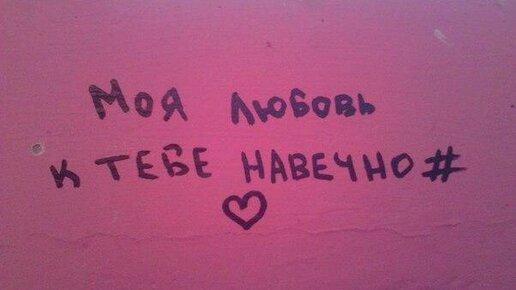 Моя любовь
к тебе навечно#